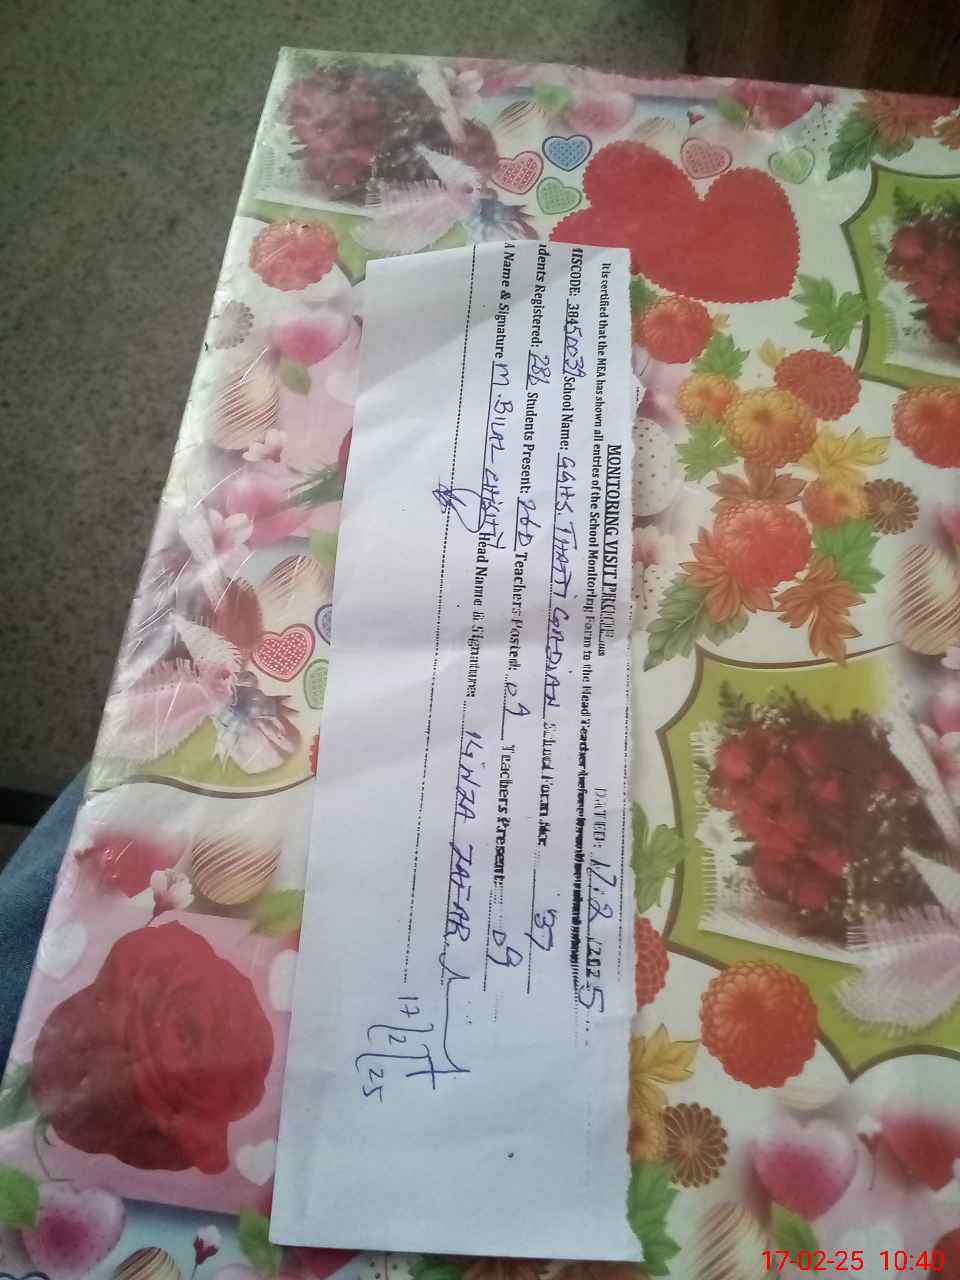 MONITORING VISIT PROOF
DATED: 17.2.2025
It is certified that the MEA has shown all entries of the School Monitoring Form to the Head Teacher before
MISCODE: 38450039 School Name: GGHS. THATTI GADIAN School Form No: 37
dents Registered: 286 Students Present: 260 Teachers Posted: 09 Teachers Present: 09
A Name & Signature M. BILAL CHISHTY Head Name & Signature: KINZA ZAFAR
17/2/25
17-02-25 10:40